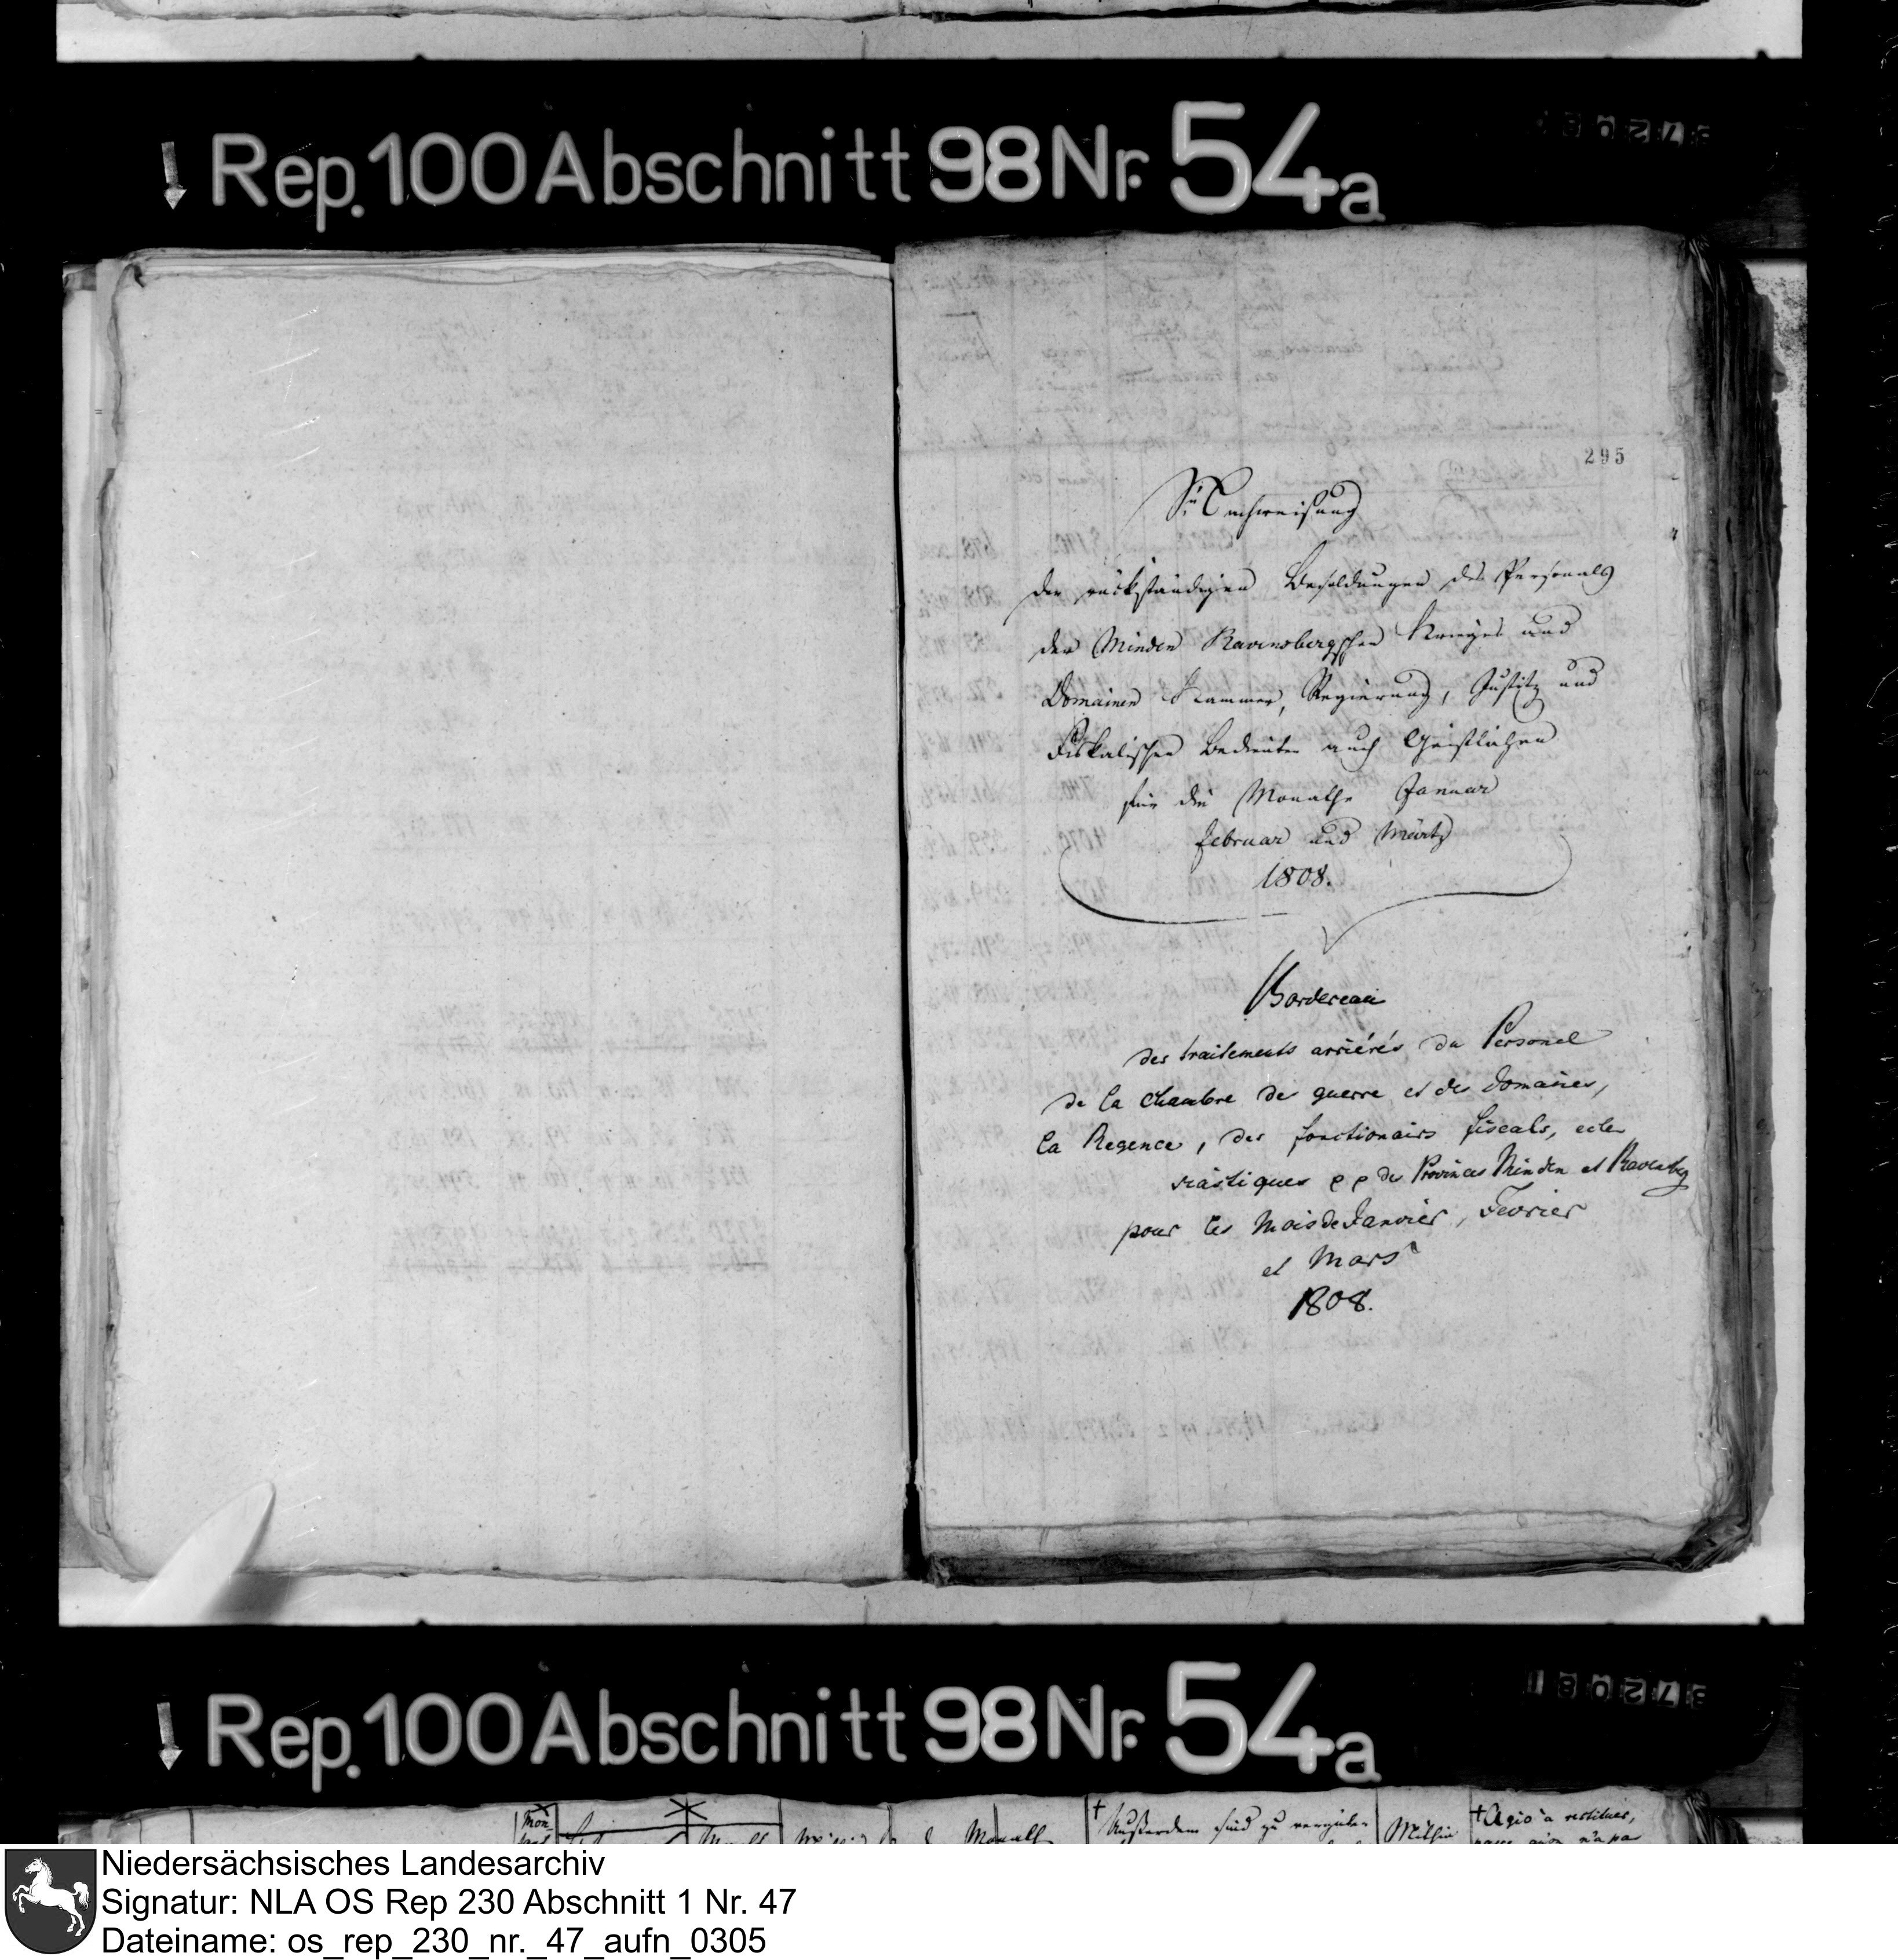 Rep. 100 Abschnitt 98 Nr. 54a
295
Nachweisung
der rückständigen Besoldungen des Personals
der Minden Ravensbergschen Krieges und
Domainen Kammer, Regierung, Justitz und
Fiskalischen Bedienten auch Geistlichen
für die Monathe Januar
Februar und Märtz
1808.
Bordereau
des traitements arriérés du Personel
de la chambre de guerre et des domaines,
la Regence, des fonctionairs fiscals, eccle
siastiques p p des Provinces Minden et Ravensbg
pour les Mois de Janvier, Fevrier
et Mars
1808.
Rep. 100 Abschnitt 98 Nr. 54a
372081
Außerdem sind zu vergüten
Mithin
Agio à restituer,
Monath
Niedersächsisches Landesarchiv
Signatur: NLA OS Rep 230 Abschnitt 1 Nr. 47
Dateiname: os_rep_230_nr._47_aufn_0305